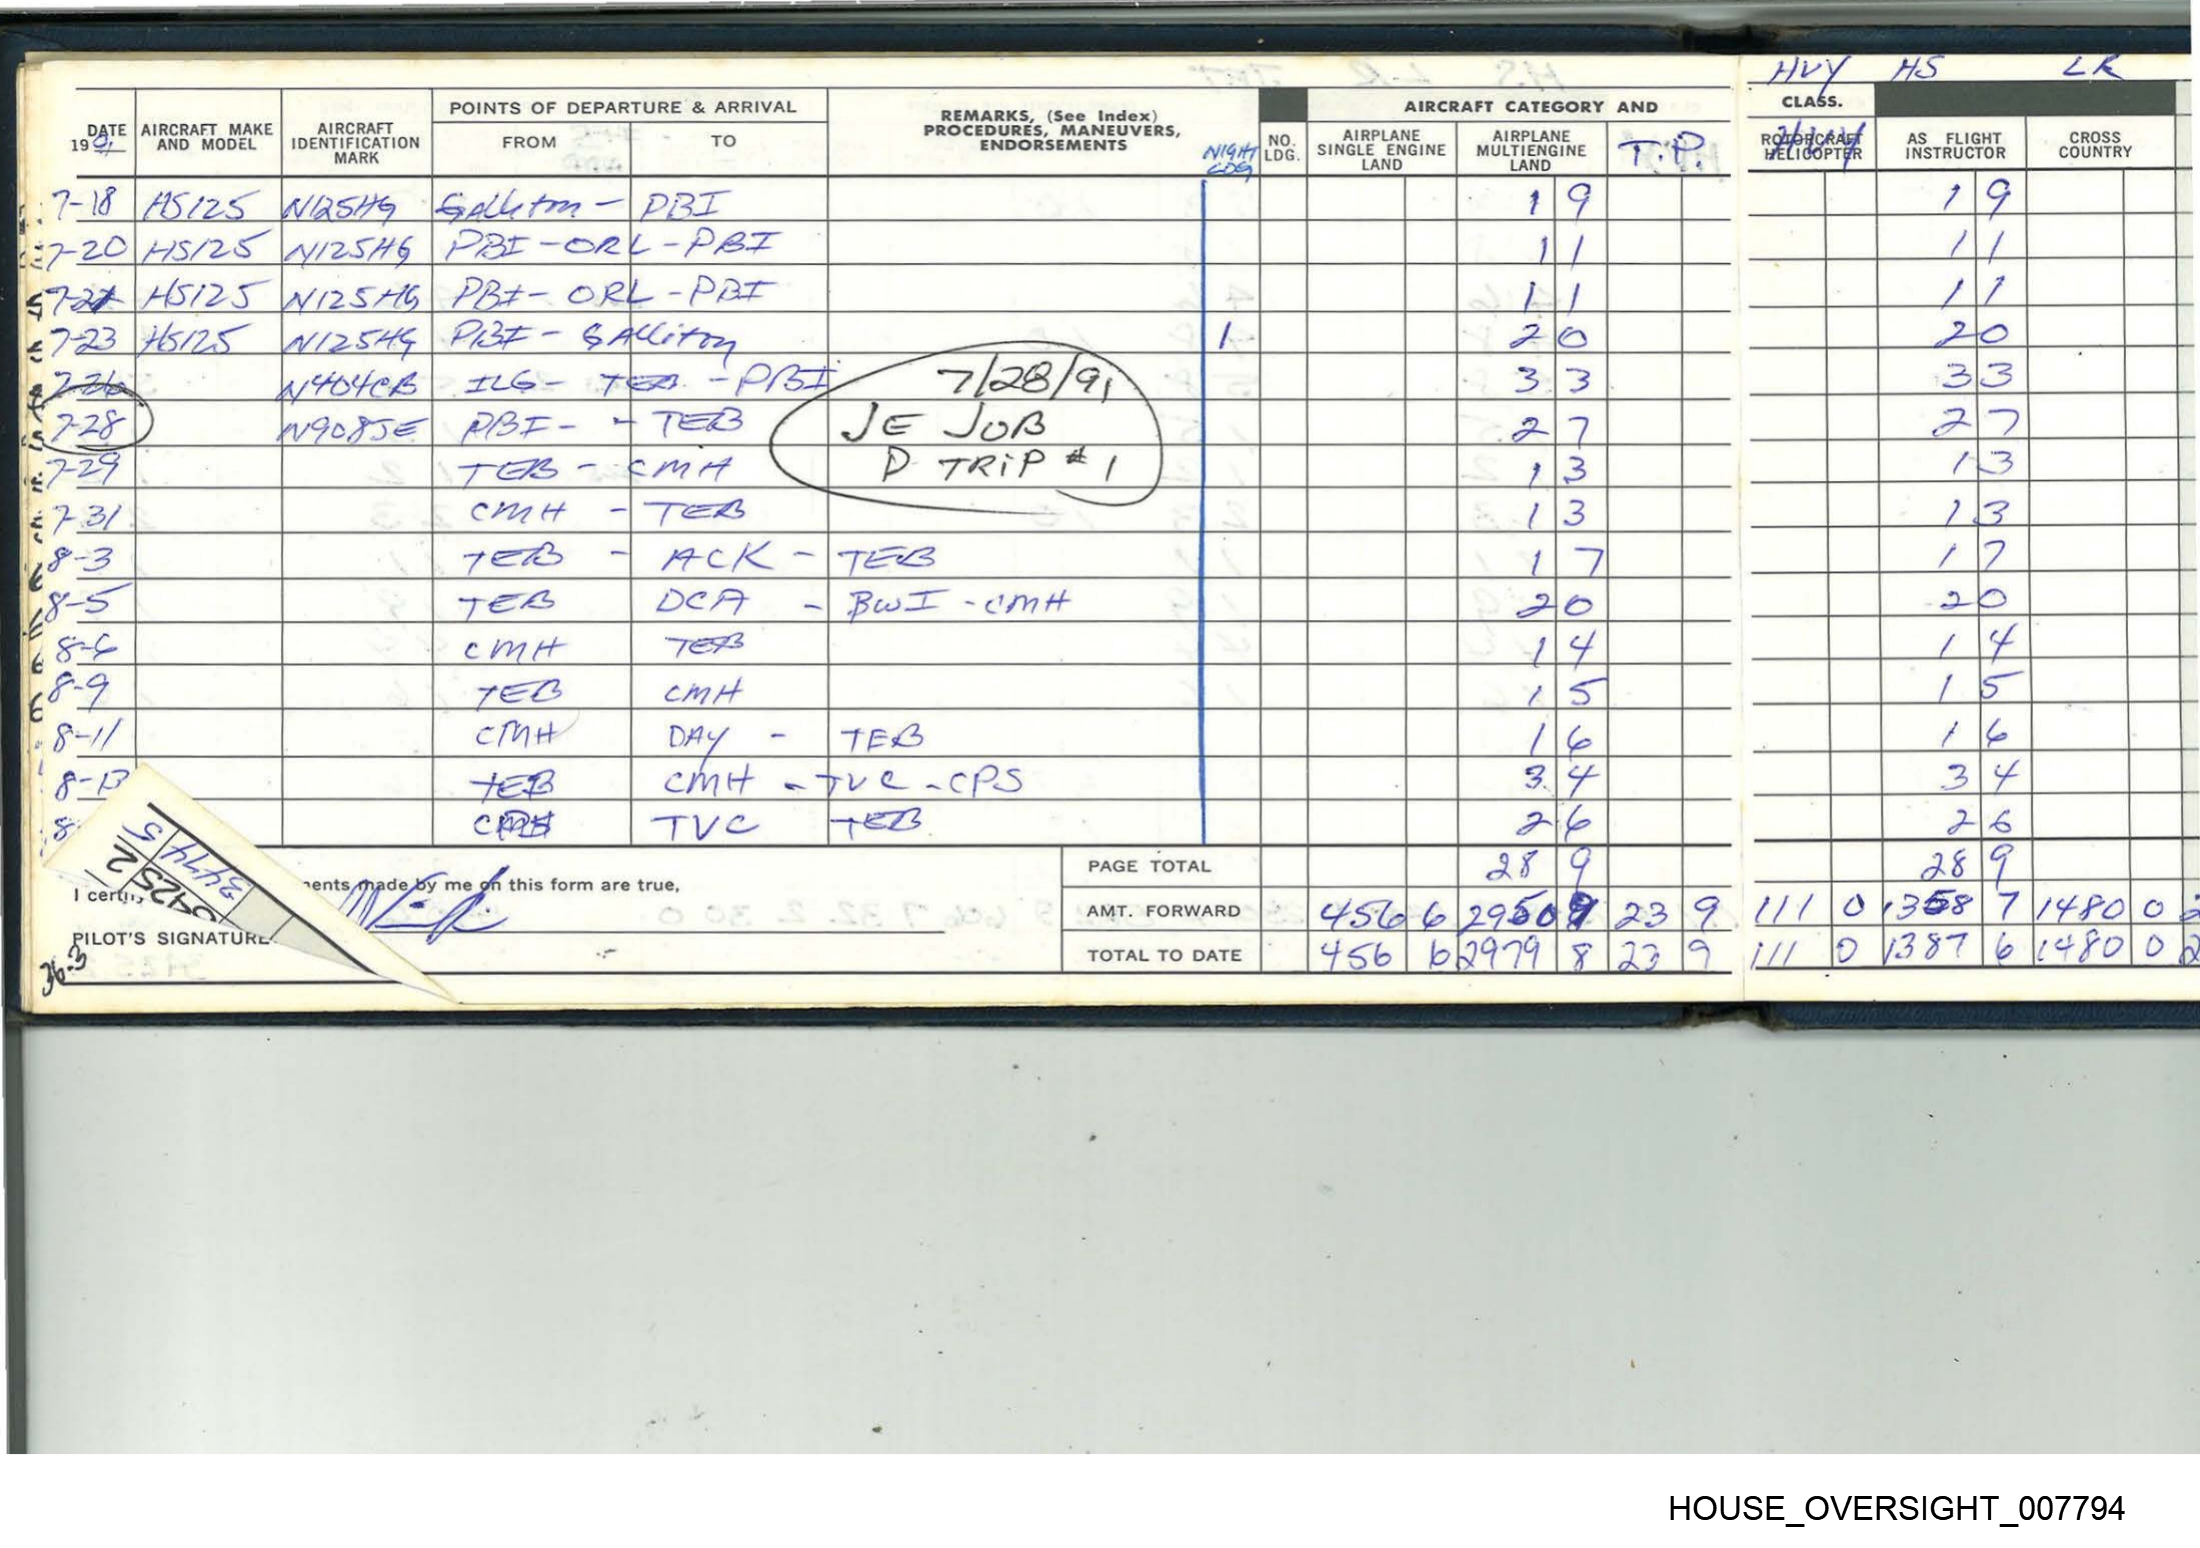 HVY HS LR
DATE 19 91 AIRCRAFT MAKE AND MODEL AIRCRAFT IDENTIFICATION MARK POINTS OF DEPARTURE & ARRIVAL FROM TO REMARKS, (See Index) PROCEDURES, MANEUVERS, ENDORSEMENTS NIGHT LDG NO. LDG. AIRCRAFT CATEGORY AND AIRPLANE SINGLE ENGINE LAND AIRPLANE MULTIENGINE LAND T.P. CLASS. ROTORCRAFT HELICOPTER HVY AS FLIGHT INSTRUCTOR CROSS COUNTRY
7-18 HS125 N125HG Galliton - PBI 1 9 1 9
7-20 HS125 N125HG PBI - ORL - PBI 1 1 1 1
7-21 HS125 N125HG PBI - ORL - PBI 1 1 1 1
7-23 HS125 N125HG PBI - Galliton 1 2 0 2 0
7-26 N404CB ILG - TEB - PBI 7/28/91 3 3 3 3
7-28 N908JE PBI - - TEB JE JOB 2 7 2 7
7-29 TEB - CMH D TRIP #1 1 3 1 3
7-31 CMH - TEB 1 3 1 3
8-3 TEB - ACK - TEB 1 7 1 7
8-5 TEB DCA - BWI - CMH 2 0 2 0
8-6 CMH TEB 1 4 1 4
8-9 TEB CMH 1 5 1 5
8-11 CMH DAY - TEB 1 6 1 6
8-13 TEB CMH - TVC - CPS 3 4 3 4
8- TVC TEB 2 6 2 6
PAGE TOTAL 28 9 28 9
I certi ents made by me on this form are true, AMT. FORWARD 456 6 2950 9 23 9 111 0 1358 7 1480 0 2
PILOT'S SIGNATURE TOTAL TO DATE 456 6 2979 8 23 9 111 0 1387 6 1480 0 2
3474 5
0425 2
36-3
HOUSE_OVERSIGHT_007794